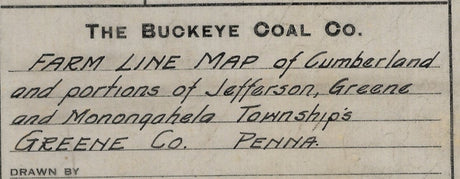 THE BUCKEYE COAL CO.
FARM LINE MAP of Cumberland
and portions of Jefferson, Greene
and Monongahela Township's
GREENE Co. PENNA.
DRAWN BY